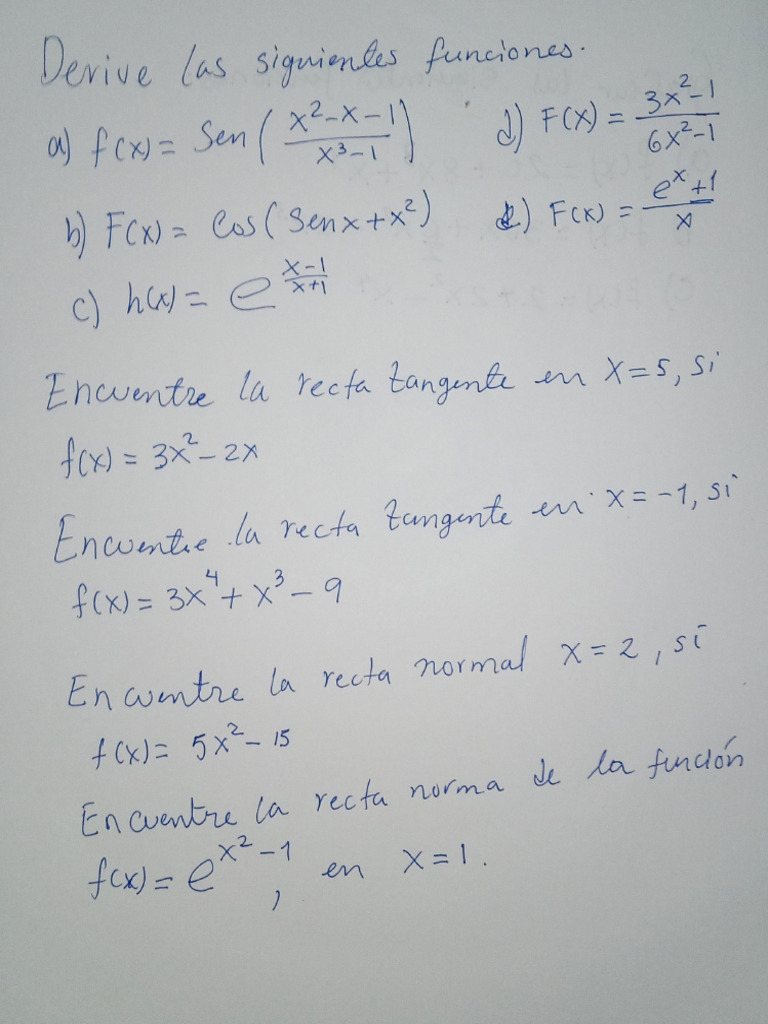 Derive las siguientes funciones.
a) f(x) = Sen( (x²-x-1)/(x³-1) )
d) F(x) = (3x²-1)/(6x²-1)
b) F(x) = Cos(Senx+x²)
e) F(x) = (eˣ+1)/x
c) h(x) = e^((x-1)/(x+1))
Encuentre la recta tangente en x=5, si
f(x) = 3x²-2x
Encuentre la recta tangente en x=-1, si
f(x) = 3x⁴+x³-9
Encuentre la recta normal x=2, si
f(x) = 5x²-15
Encuentre la recta norma de la función
f(x) = e^(x²-1), en x=1.